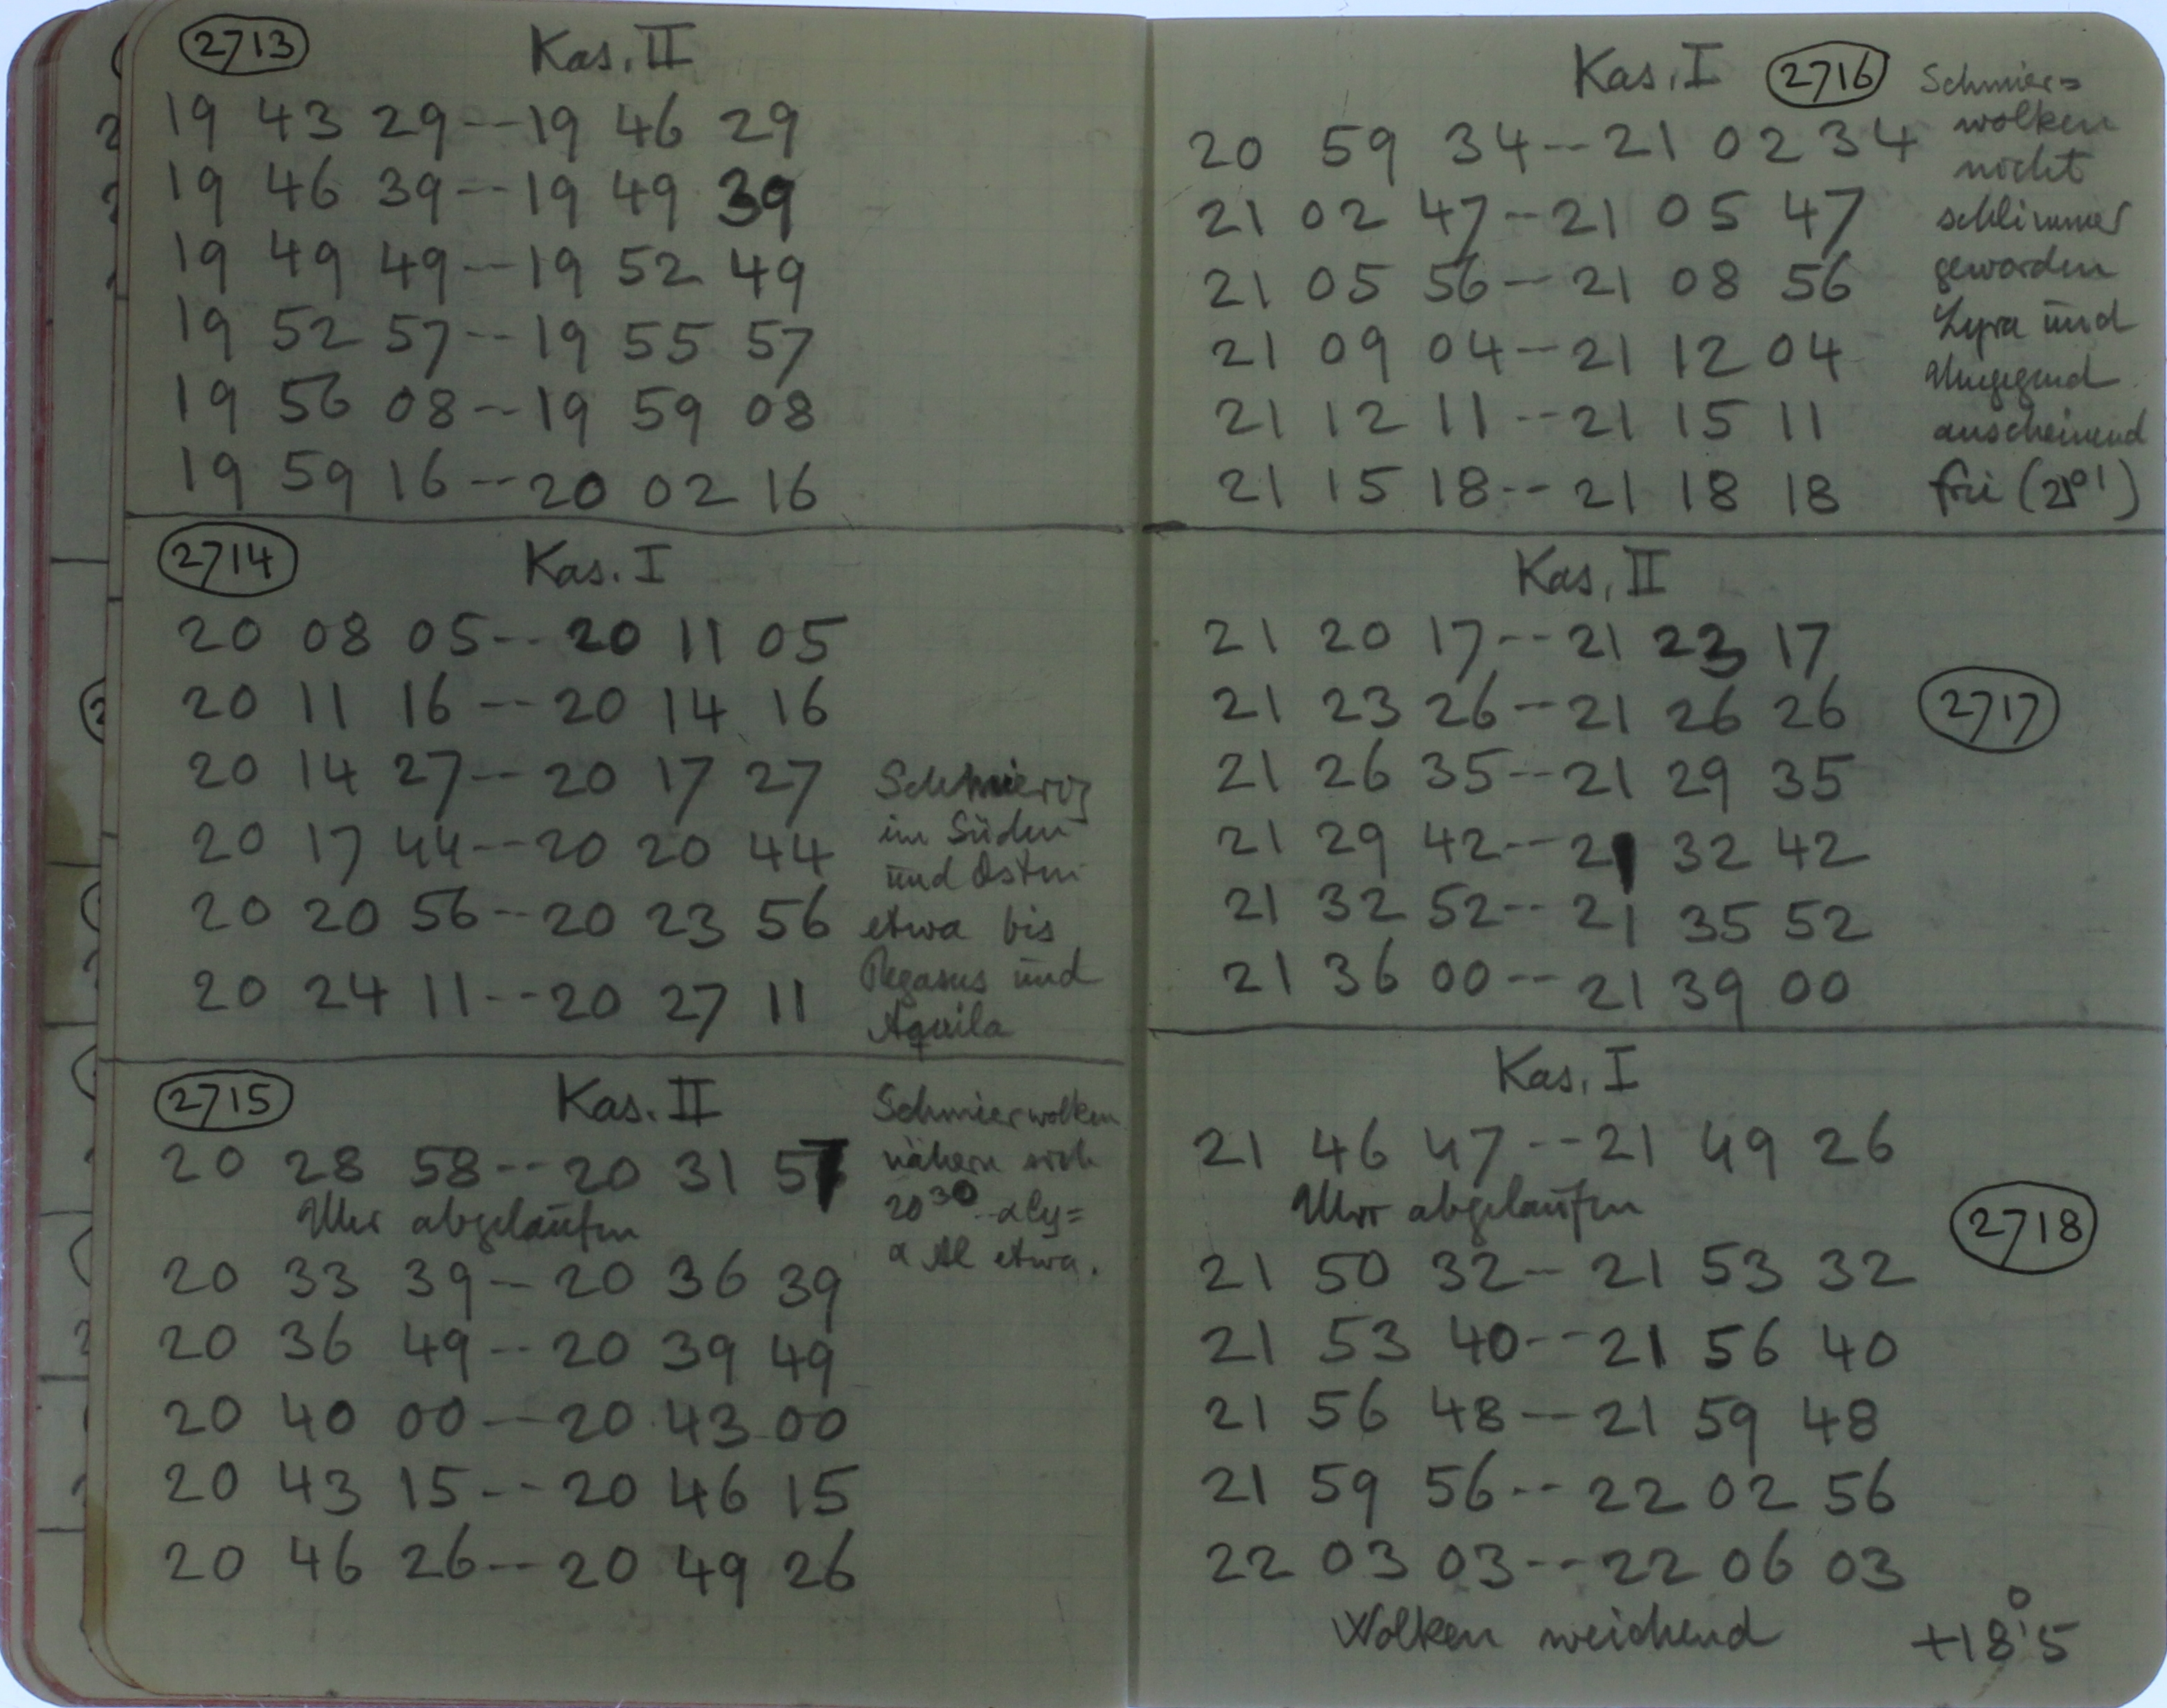 2713 Kas. II
19 43 29 -- 19 46 29
19 46 39 -- 19 49 39
19 49 49 -- 19 52 49
19 52 57 -- 19 55 57
19 56 08 -- 19 59 08
19 59 16 -- 20 02 16
2714 Kas. I
20 08 05 -- 20 11 05
20 11 16 -- 20 14 16
20 14 27 -- 20 17 27
20 17 44 -- 20 20 44
20 20 56 -- 20 23 56
20 24 11 -- 20 27 11
Schmierig
im Süden
und Osten
etwa bis
Pegasus und
Aquila
2715 Kas. II
20 28 58 -- 20 31 57
Uhr abgelaufen
20 33 39 -- 20 36 39
20 36 49 -- 20 39 49
20 40 00 -- 20 43 00
20 43 15 -- 20 46 15
20 46 26 -- 20 49 26
Schmierwolken
nähern sich
20 30 αCy=
α Al etwa.
Kas. I 2716
20 59 34 -- 21 02 34
21 02 47 -- 21 05 47
21 05 56 -- 21 08 56
21 09 04 -- 21 12 04
21 12 11 -- 21 15 11
21 15 18 -- 21 18 18
Schmier=
wolken
nicht
schlimmer
geworden
Lyra und
Umgegend
anscheinend
frei (21°1)
Kas. II
21 20 17 -- 21 23 17
21 23 26 -- 21 26 26
21 26 35 -- 21 29 35
21 29 42 -- 21 32 42
21 32 52 -- 21 35 52
21 36 00 -- 21 39 00
2717
Kas. I
21 46 47 -- 21 49 26
Uhr abgelaufen
21 50 32 -- 21 53 32
21 53 40 -- 21 56 40
21 56 48 -- 21 59 48
21 59 56 -- 22 02 56
22 03 03 -- 22 06 03
2718
Wolken weichend +18°.5